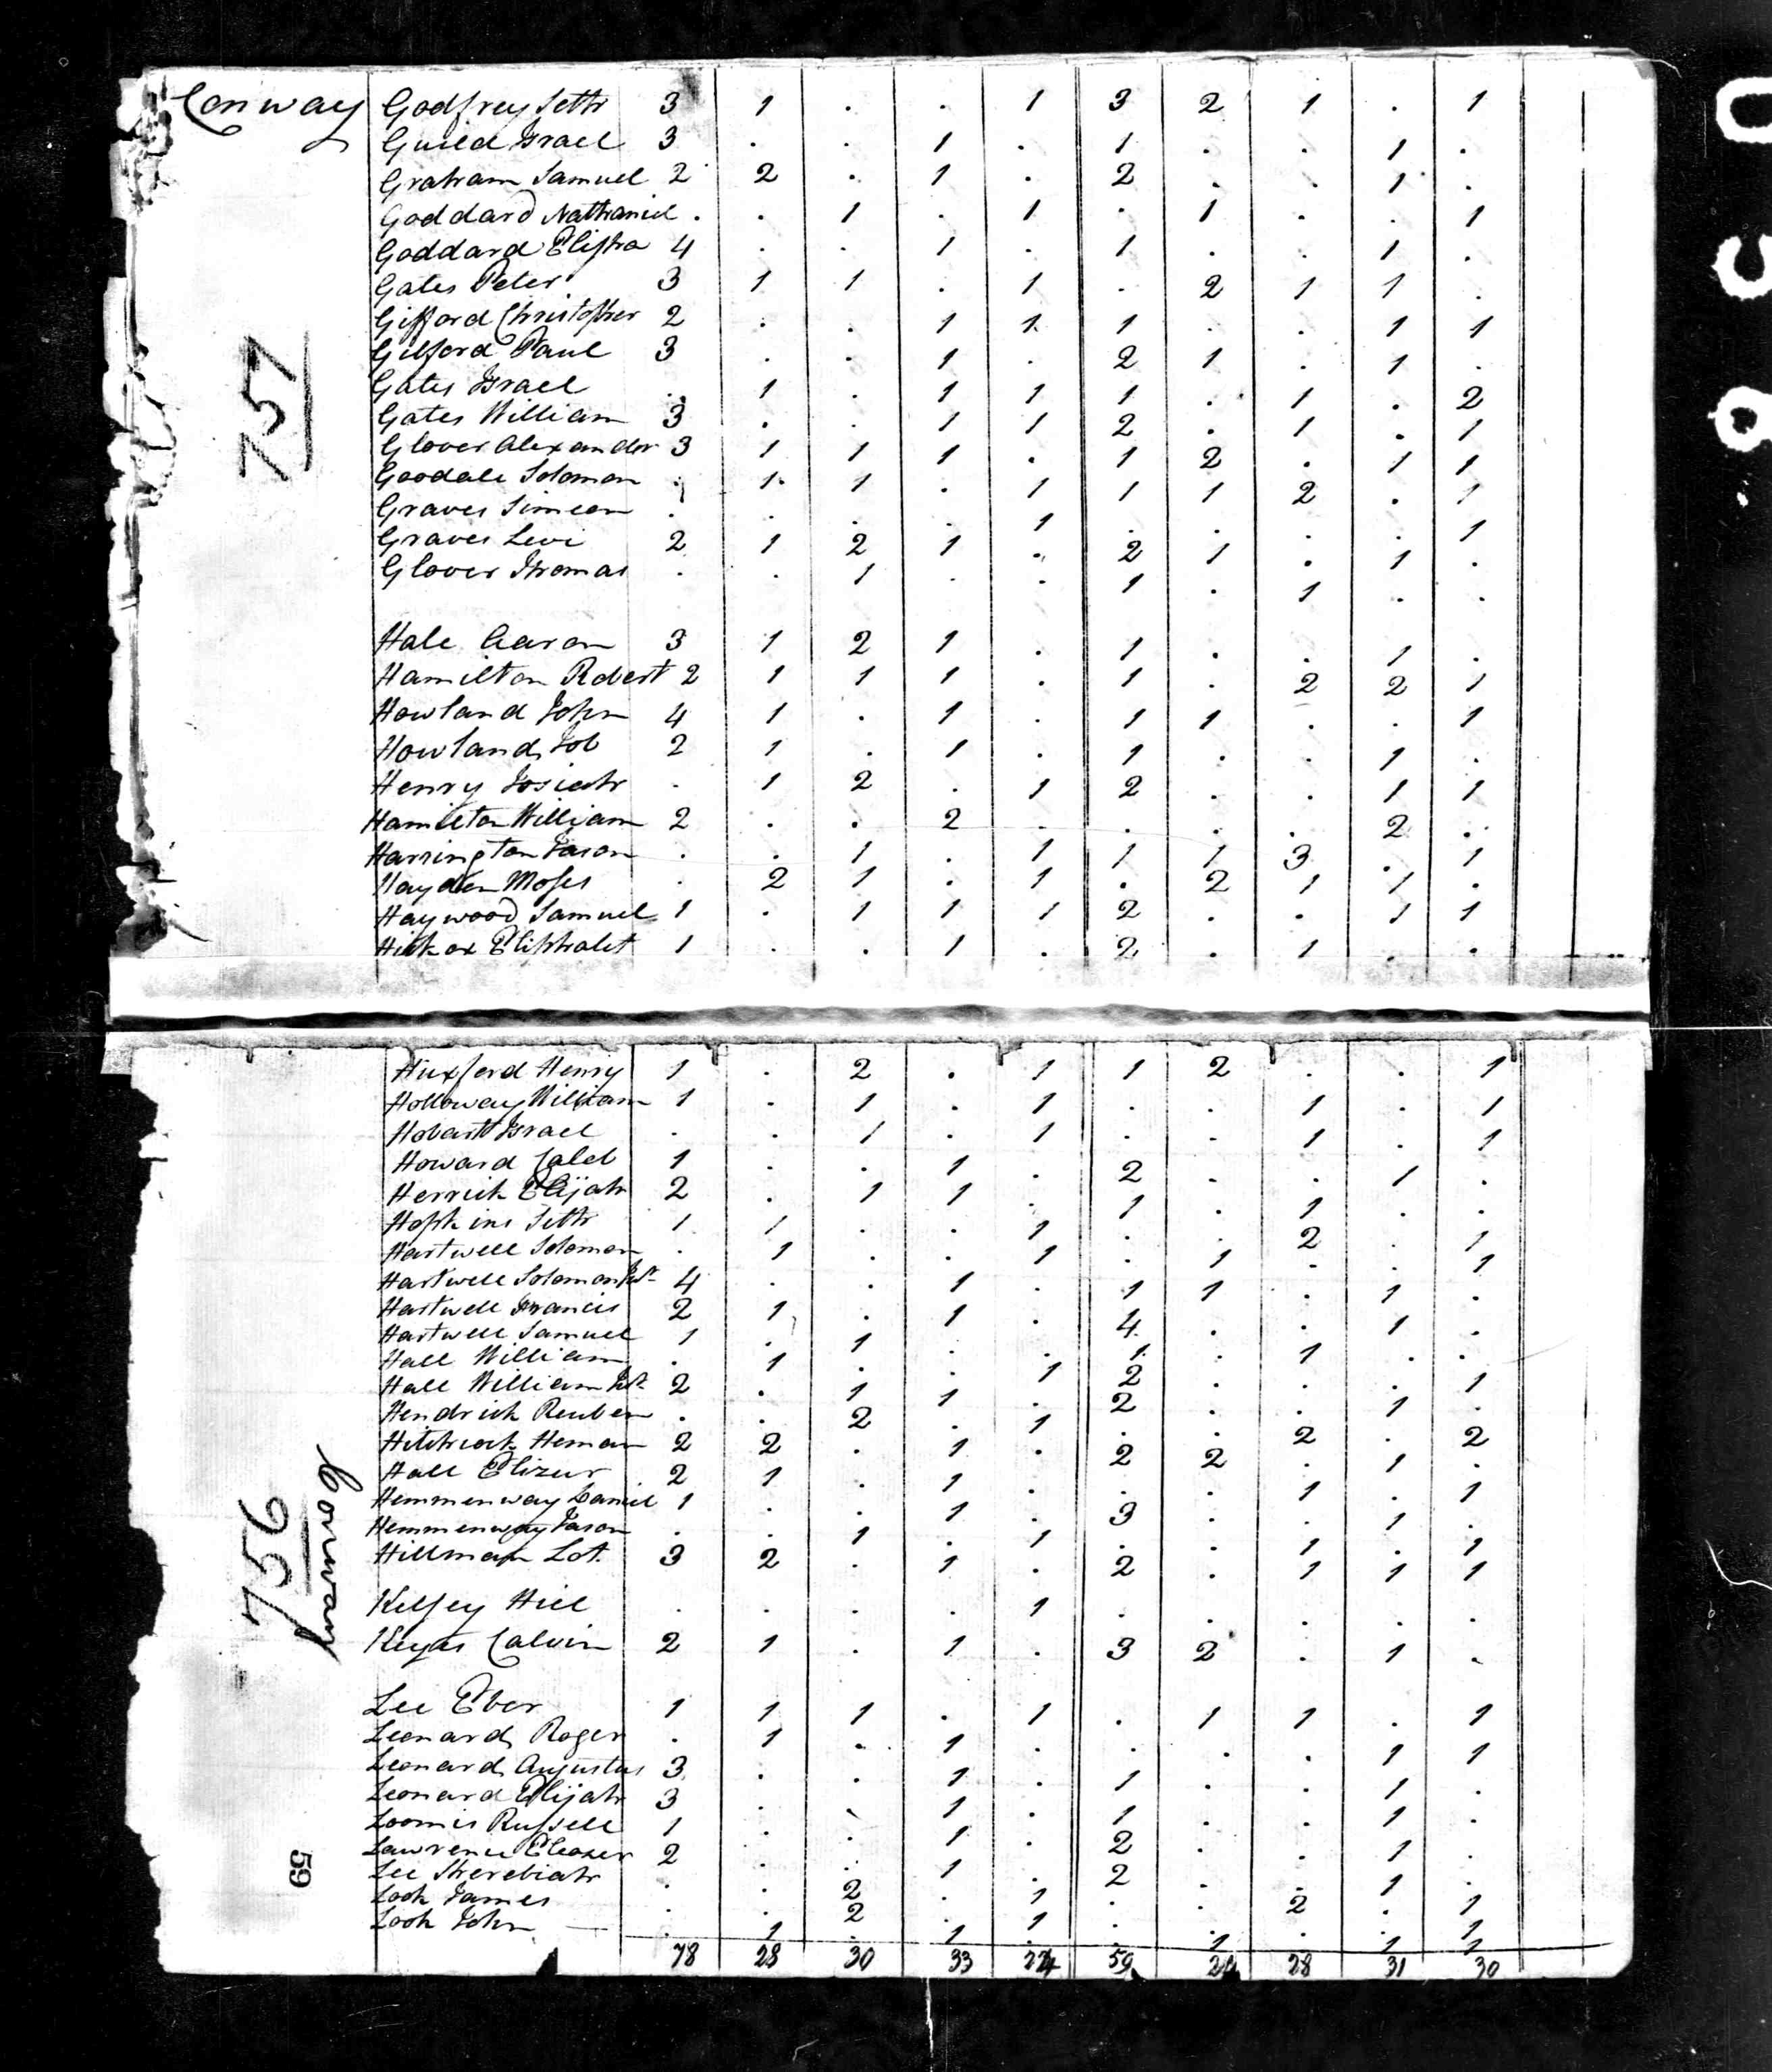 Conway Godfrey Seth 3 1 . . 1 3 2 1 . 1
Guild Israel 3 . . 1 . 1 . . 1 .
Graham Samuel 2 2 . 1 . 2 . . 1 .
Goddard Nathaniel . . 1 . 1 . 1 . . 1
Goddard Elisha 4 . . 1 . 1 . . 1 .
Gates Peter 3 1 1 . 1 . 2 1 1 .
Gifford Christopher 2 . . 1 1 1 . . 1 1
Gilford Paul 3 . . 1 . 2 1 . 1 .
Gates Israel . 1 . 1 1 1 . 1 . 2
Gates William 3 . . 1 1 2 . 1 . 1
Glover Alexander 3 1 1 1 . 1 2 . 1 1
Goodale Solomon . 1 1 . 1 1 1 2 . 1
Graves Simeon . . . . 1 . . . . 1
Graves Levi 2 1 2 1 . 2 1 . 1 .
Glover Thomas . . 1 . . 1 . 1 . .
757
Hale Aaron 3 1 2 1 . 1 . . 1 .
Hamilton Robert 2 1 1 1 . 1 . 2 2 1
Howland John 4 1 . 1 . 1 1 . . 1
Howland Job 2 1 . 1 . 1 . . 1 .
Henry Josiah . 1 2 . 1 2 . . 1 1
Hamilton William 2 . . 2 . . . . 2 .
Harrington Jason . . 1 . 1 1 1 3 . 1
Hayden Moses . 2 1 . 1 . 2 1 1 .
Haywood Samuel 1 . 1 1 1 2 . . 1 1
Hickox Eliphalet 1 . . 1 . 2 . 1 . .
Huxford Henry 1 . 2 . 1 1 2 . . 1
Holloway William 1 . 1 . 1 . . 1 . 1
Hobart Israel . . 1 . 1 . . 1 . 1
Howard Caleb 1 . . 1 . 2 . . 1 .
Herrick Elijah 2 . 1 1 . 1 . 1 . .
Hopkins Seth 1 1 . . 1 . . 2 . 1
Hartwell Solomon . 1 . . 1 . 1 . . 1
Hartwell Solomon 4 . . 1 . 1 1 . 1 .
Hartwell Francis 2 1 . 1 . 4 . . 1 .
Hartwell Samuel 1 . 1 . . 1 . 1 . .
Hall William . 1 . . 1 2 . . . 1
Hall William 2 . 1 1 . 2 . . 1 .
Hendrick Reuben . . 2 . 1 . . 2 . 2
Hitchcock Heman 2 2 . 1 . 2 2 . 1 .
Hall Elizur 2 1 . 1 . . . 1 . 1
Hemmenway Daniel 1 . . 1 . 3 . . 1 .
Hemmenway Jason . . 1 . 1 . . 1 . 1
Hillman Lot 3 2 . 1 . 2 . 1 1 1
756 Conway
Kelsey Hiel . . . . 1 . . . . .
Keyes Calvin 2 1 . 1 . 3 2 . 1 .
Lee Eber 1 1 1 . 1 . 1 1 . 1
Leonard Roger . 1 . 1 . . . . 1 1
Leonard Augustus 3 . . 1 . 1 . . 1 .
Leonard Elijah 3 . . 1 . 1 . . 1 .
Loomis Russell 1 . . 1 . 2 . . 1 .
Lawrence Eleazer 2 . . 1 . 2 . . 1 .
Lee Sherebiah . . 2 . 1 . . 2 . 1
Look James . . 2 . 1 . . . . 1
Look John . 1 . 1 . . 1 . 1 1
59
78 28 30 33 59 28 31 30